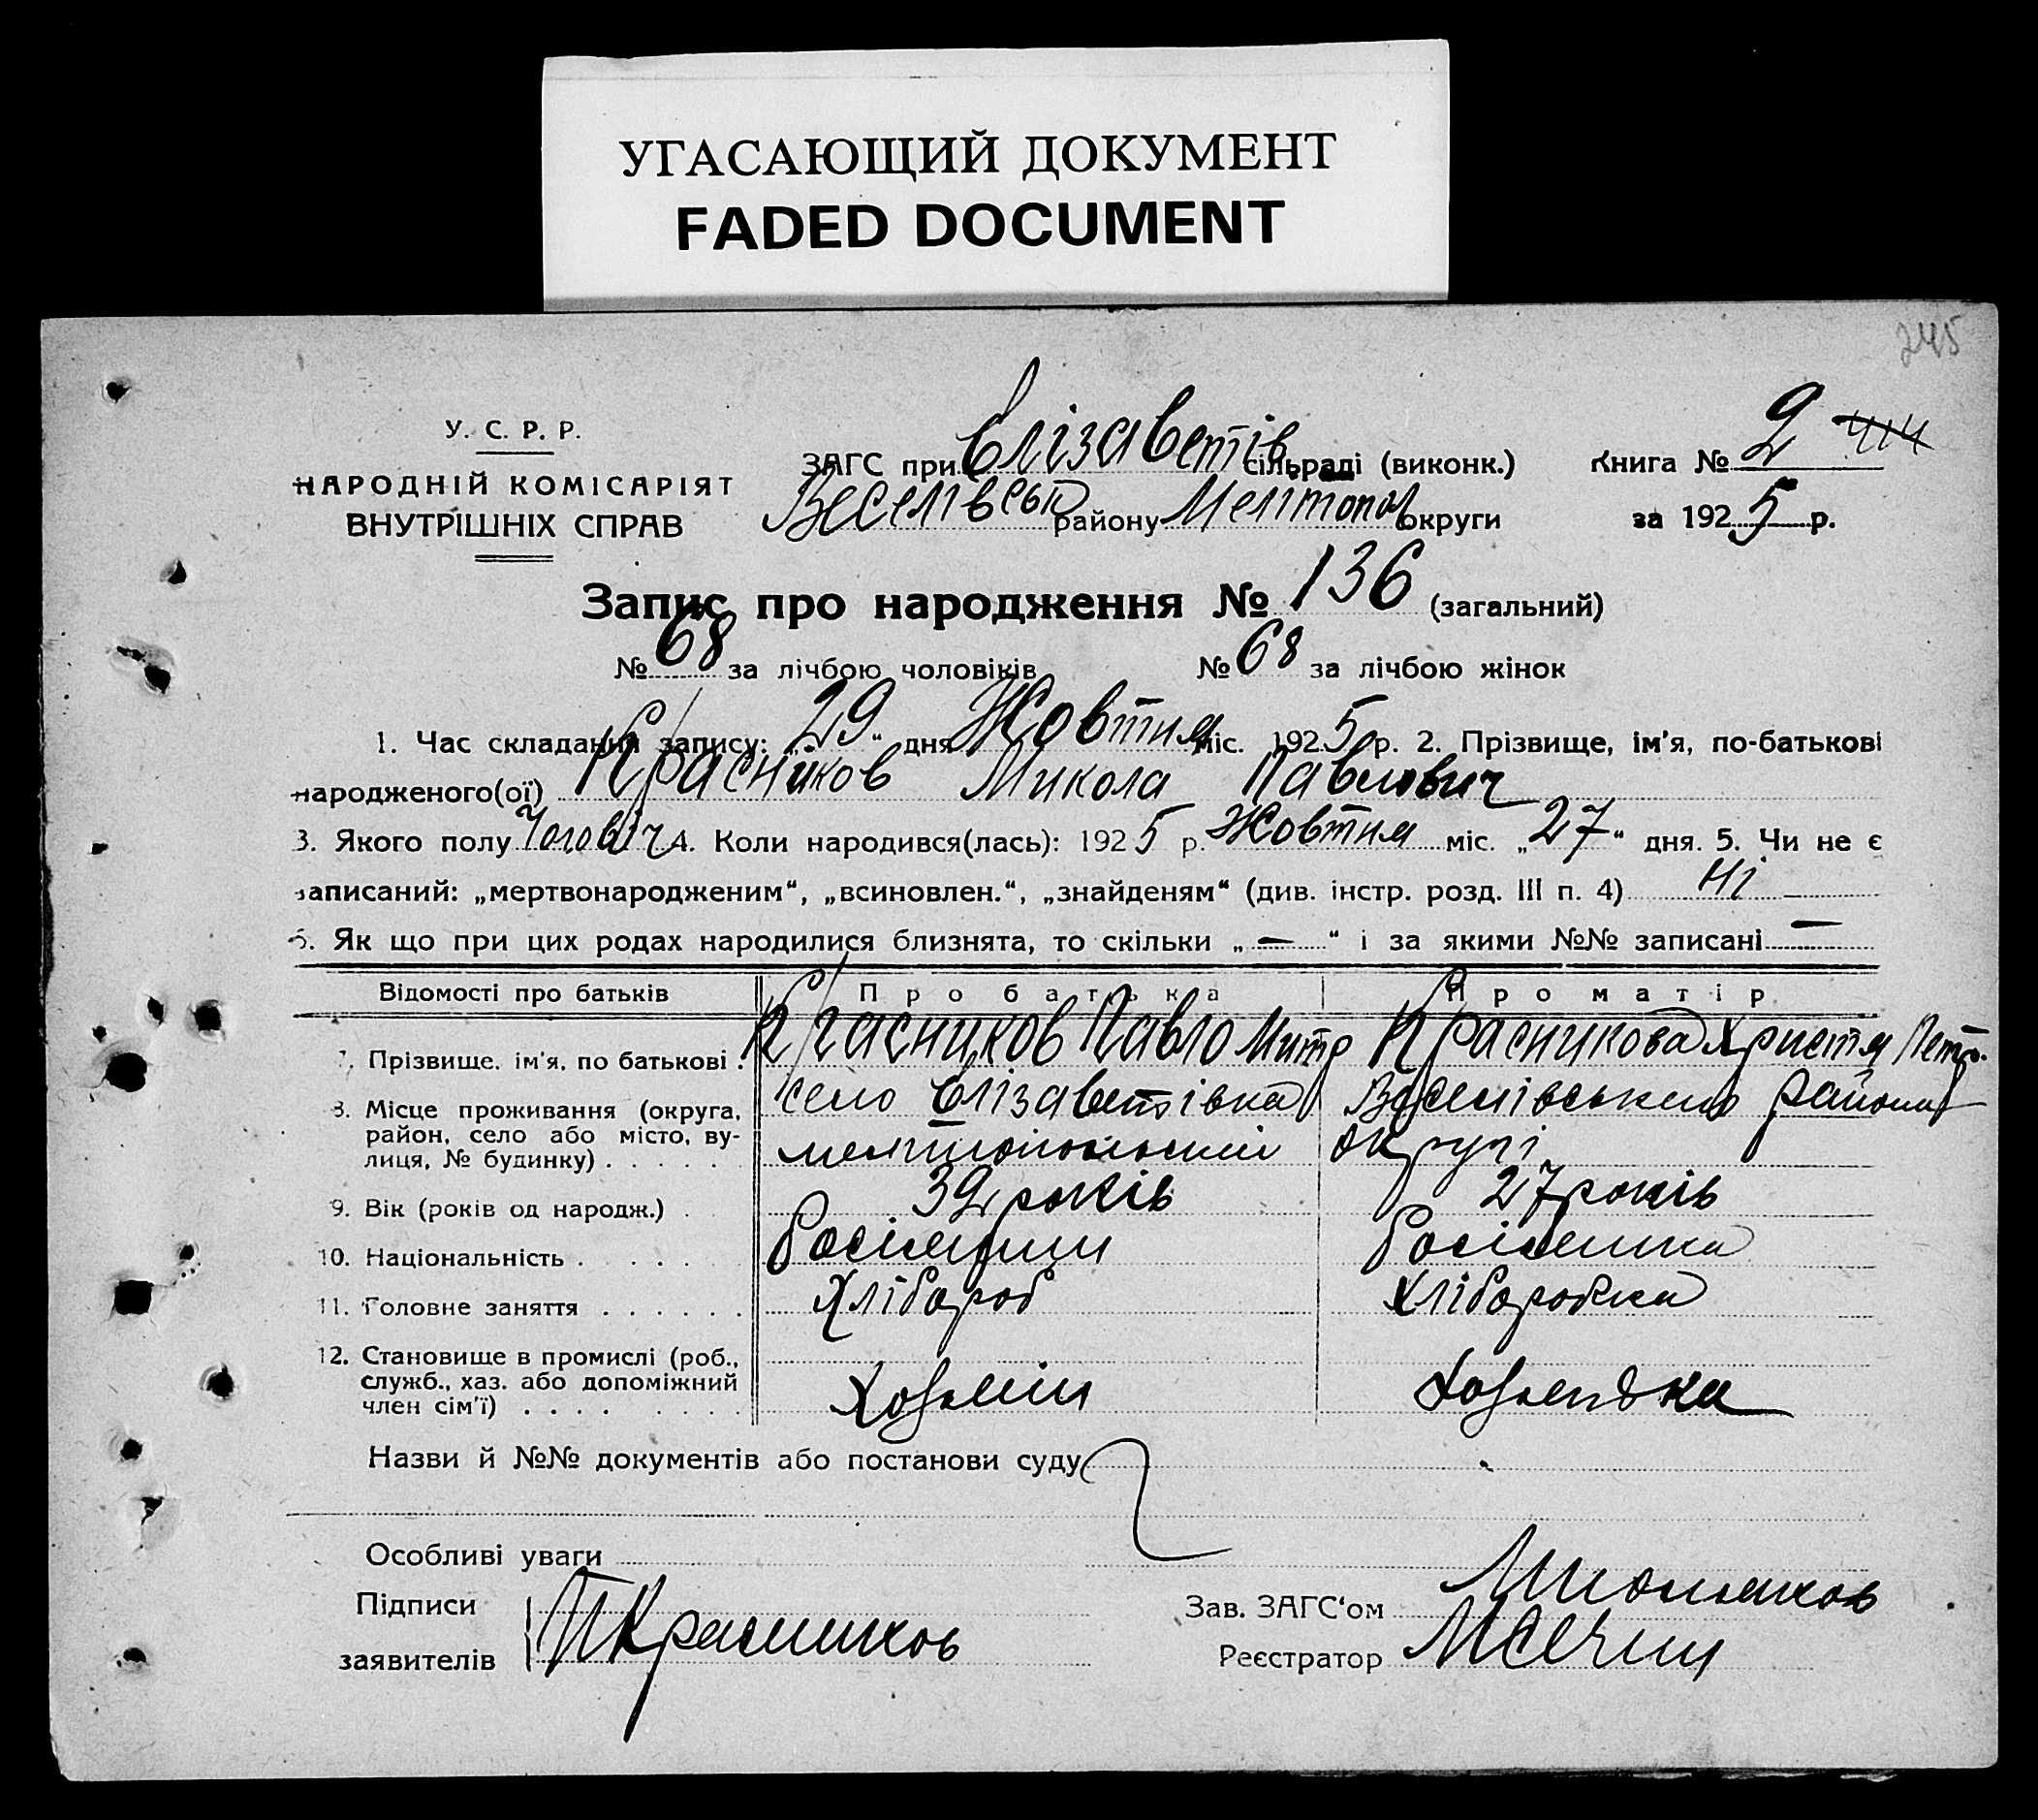 УГАСАЮЩИЙ ДОКУМЕНТ
FADED DOCUMENT
245
У. С. Р. Р.
НАРОДНІЙ КОМІСАРІЯТ
ВНУТРІШНІХ СПРАВ
ЗАГС при Єлізаветів сільраді (виконк.) Книга № 2 414
Веселівськ району Мелітопол округи за 1925 р.
Запис про народження № 136 (загальний)
№ 68 за лічбою чоловіків № 68 за лічбою жінок
1. Час складання запису: „29“ дня Жовтня міс. 1925 р. 2. Прізвище, ім'я, по-батькові
народженого(ої) Красников Микола Павлович
3. Якого полу Чоловіч 4. Коли народився(лась): 1925 р. Жовтня міс. „27“ дня. 5. Чи не є
записаний: „мертвонародженим“, „всиновлен.“, „знайденям“ (див. інстр. розд. III п. 4) Ні —
6. Як що при цих родах народилися близнята, то скільки „ — “ і за якими №№ записані —
Відомості про батьків Про батька Про матір
7. Прізвище. ім'я, по батькові . Красников Павло Митр Красникова Христя Петр.
8. Місце проживання (округа, село Єлізаветівка Веселівського району
район, село або місто, ву-
лиця, № будинку) . . . . . мелітопольській окрузі
9. Вік (років од народж.) . 39 років 27 років
10. Національність . . . . . Росіянин Росіянка
11. Головне заняття . . . . . . Хлібороб Хліборобка
12. Становище в промислі (роб.,
служб., хаз. або допоміжний
член сім'ї) . . . . . . . . Хозяін Хозяйка
Назви й №№ документів або постанови суду
Особливі уваги
Підписи
заявителів ПКрасников
Зав. ЗАГС‘ом
Реєстратор